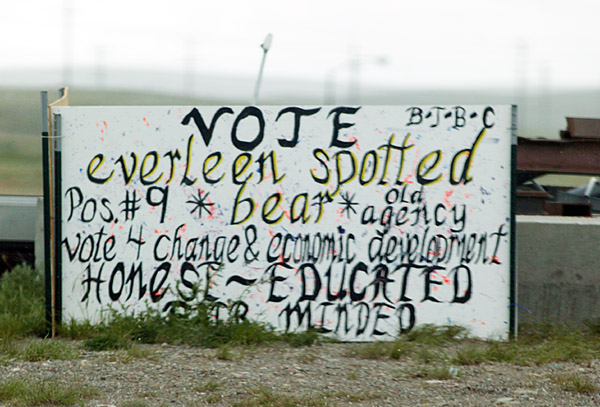 VOTE B·T·B·C
everleen spotted
Pos.#9 * bear * old agency
vote 4 change & economic development
HONEST - EDUCATED
MINDED